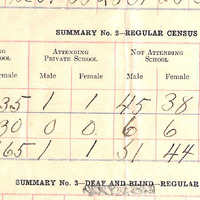 SUMMARY No. 2—REGULAR CENSUS
SCHOOL ATTENDING PRIVATE SCHOOL NOT ATTENDING SCHOOL
Female Male Female Male Female
35 1 1 45 38
30 0 0 6 6
65 1 1 51 44
SUMMARY No. 3—DEAF AND BLIND—REGULAR